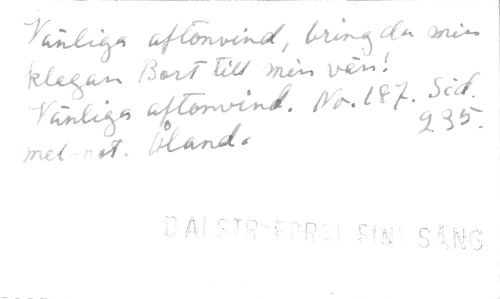 Vänliga aftonvind, bring du min
klagan Bort till min vän!
Vänliga aftonvind. No. 187. Sid.
235.
mel-not. Åland.
SÅNG